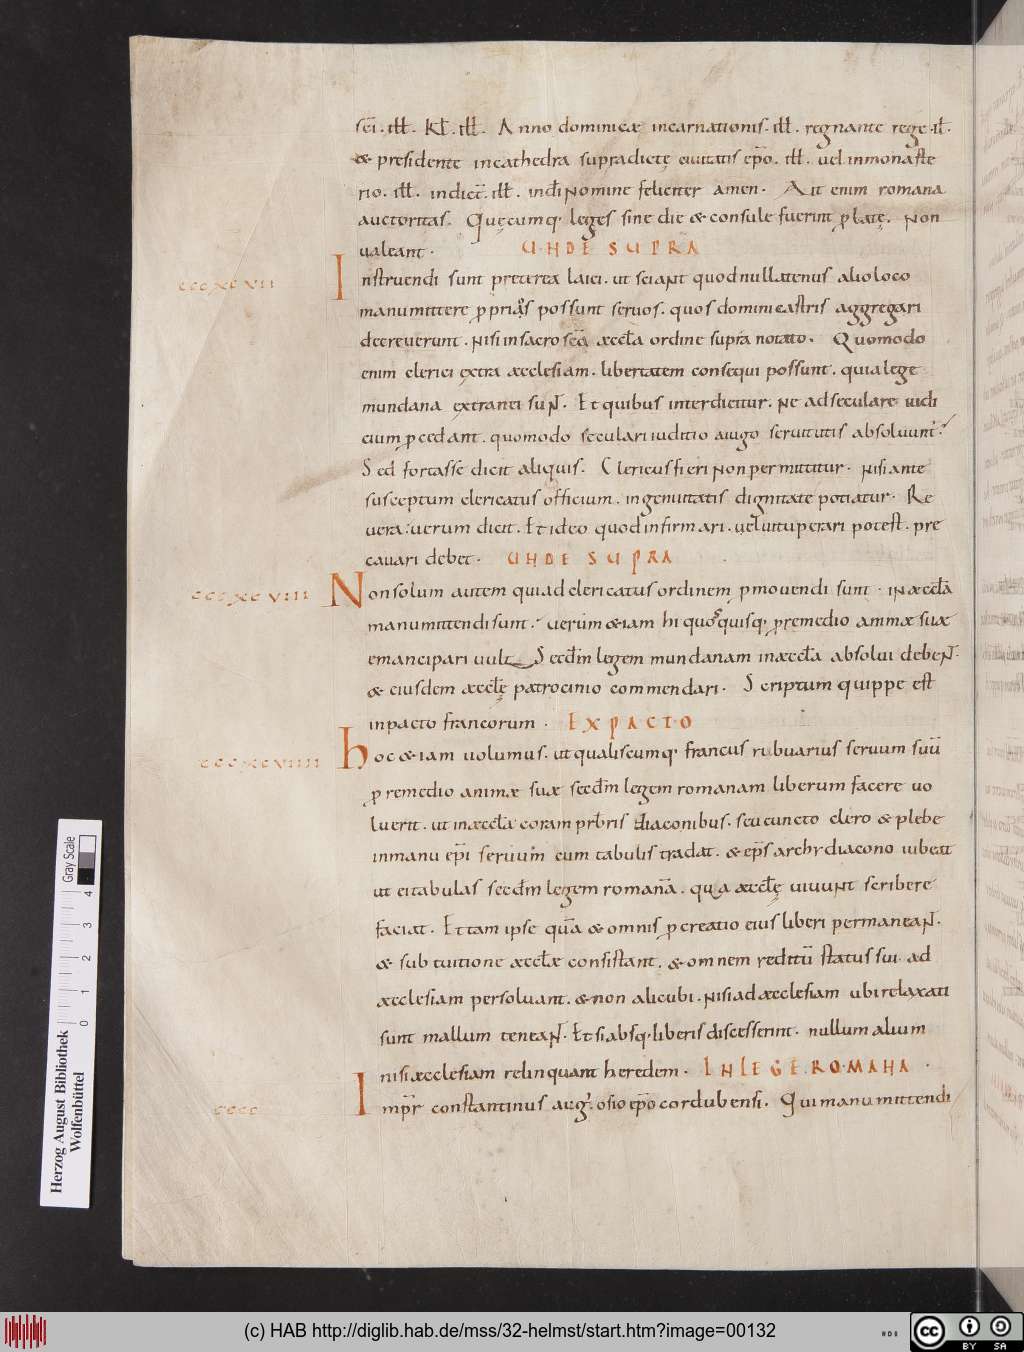 scī. ill̄. kl̄. ill̄. Anno dominicæ incarnationis. ill̄. regnante rege. il̄.
& presidente incathedra supradictę ciuitatis ep̄o. ill̄. uel inmonaste
rio. ill̄. indict̄. ill̄. indī nomine feliciter amen. Ait enim romana
auctoritas. Quęcumq; leges sine die & consule fuerint ꝓlatę. non
ualeant. UNDE SUPRA
cccxcvii Instruendi sunt preterea laici. ut sciant quod nullatenus alio loco
manumittere ꝓprios possunt seruos. quos dominicastris aggregari
decreuerunt. nisi insacrosc̄a æccl̄a ordine supra notato. Quomodo
enim clerici extra æcclesiam. libertatem consequi possunt. quia lege
mundana extranei sunt. Et quibus interdicitur. ne adseculare iudi
cium ꝓcedant. quomodo seculari iuditio aiugo seruitutis absoluunt̄?
Sed fortasse dicit aliquis. Clericus fieri non permittitur. nisi ante
susceptum clericatus officium. ingenuitatis dignitate potiatur. Re
uera: uerum dicit. Et ideo quod infirmari. uel uituperari potest. pre
cauari debet. UNDE SUPRA
cccxcviii Non solum autem qui ad clericatus ordinem ꝓmouendi sunt. in æccl̄a
manumittendi sunt. uerum &iam hi quos quisq; ꝓremedio animæ suæ
emancipari uult. Secd̄m legem mundanam inæccl̄a absolui debent.
& eiusdem æccl̄ę patrocinio commendari. Scriptum quippe est
inpacto francorum. EX PACTO
cccxcviiii Hoc &iam uolumus. ut qualiscumq; francus ribuarius seruum suū
ꝓ remedio animæ suæ secd̄m legem romanam liberum facere uo
luerit. ut inæccl̄a coram prb̄ris diaconibus. seu cuncto clero & plebe
inmanu ep̄i seruum cum tabulis tradat. & ep̄s archydiacono iubeat
ut ei tabulas secd̄m legem romanā. qua æccl̄ę uiuunt scribere
faciat. Et tam ipse quā & omnis ꝓcreatio eius liberi permaneant.
& sub tuitione æccl̄æ consistant. & omnem redditū status sui. ad
æcclesiam persoluant. & non alicubi. nisi ad æcclesiam ubi relaxati
sunt mallum teneant. Et si absq; liberis discesserint. nullum alium
nisi æcclesiam relinquant heredem. IN LEGE. ROMANA
cccc Imp̄r constantinus auḡ. osio ep̄o cordubensi. Qui manumittendi
Herzog August Bibliothek
Wolfenbüttel
0 1 2 3 4
Gray Scale
(c) HAB http://diglib.hab.de/mss/32-helmst/start.htm?image=00132
cc BY SA